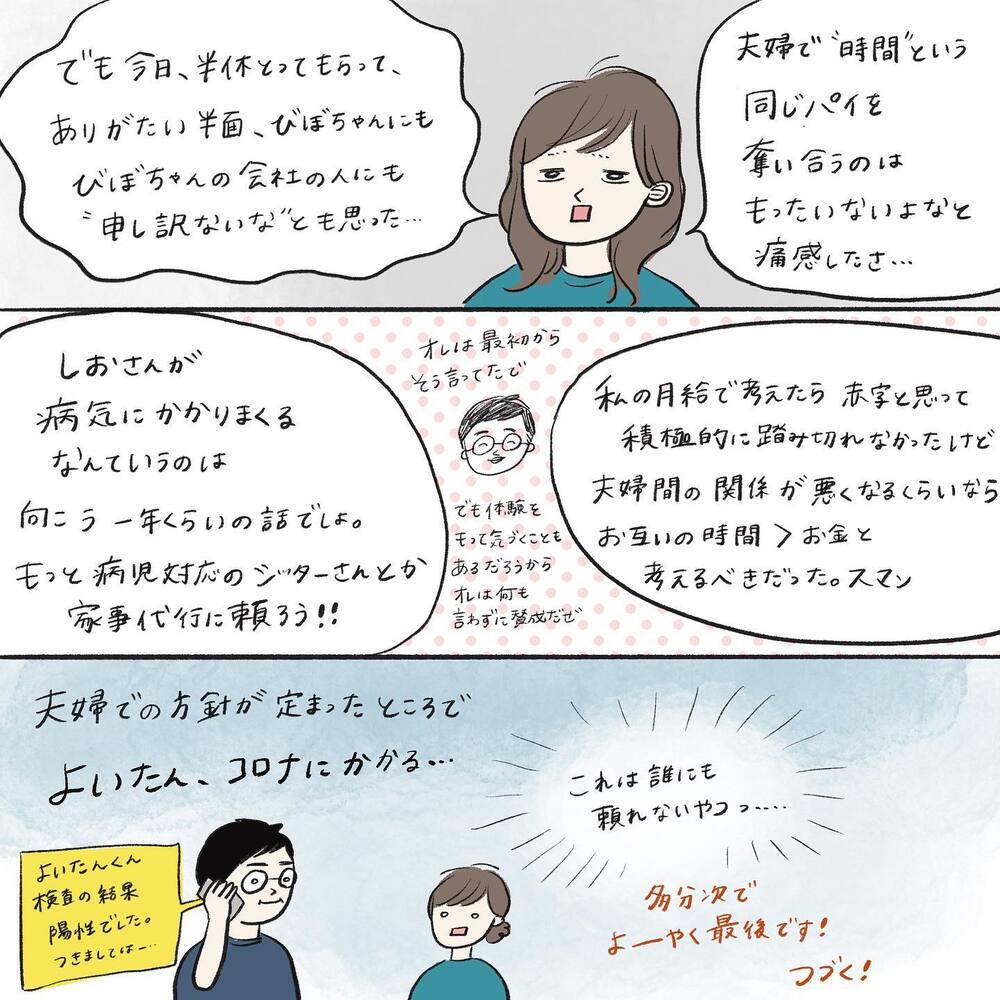 夫婦で"時間"という
同じパイを
奪い合うのは
もったいないよなと
痛感したさ…
でも今日、半休とってもらって、
ありがたい半面、びぼちゃんにも
びぼちゃんの会社の人にも
"申し訳ないな"とも思った…
私の月給で考えたら赤字と思って
積極的に踏み切れなかったけど
夫婦間の関係が悪くなるくらいなら
お互いの時間>お金と
考えるべきだった。スマン
オレは最初から
そう言ってたで
でも体験を
もって気づくことも
あるだろうから
オレは何も
言わずに賛成だぜ
しおさんが
病気にかかりまくる
なんていうのは
向こう一年くらいの話でしょ。
もっと病児対応のシッターさんとか
家事代行に頼ろう!!
夫婦での方針が定まったところで
よいたん、コロナにかかる…
これは誰にも
頼れないやつっ……
よいたんくん
検査の結果
陽性でした。
つきましてはー…
多分次で
よーやく最後です!
つづく!